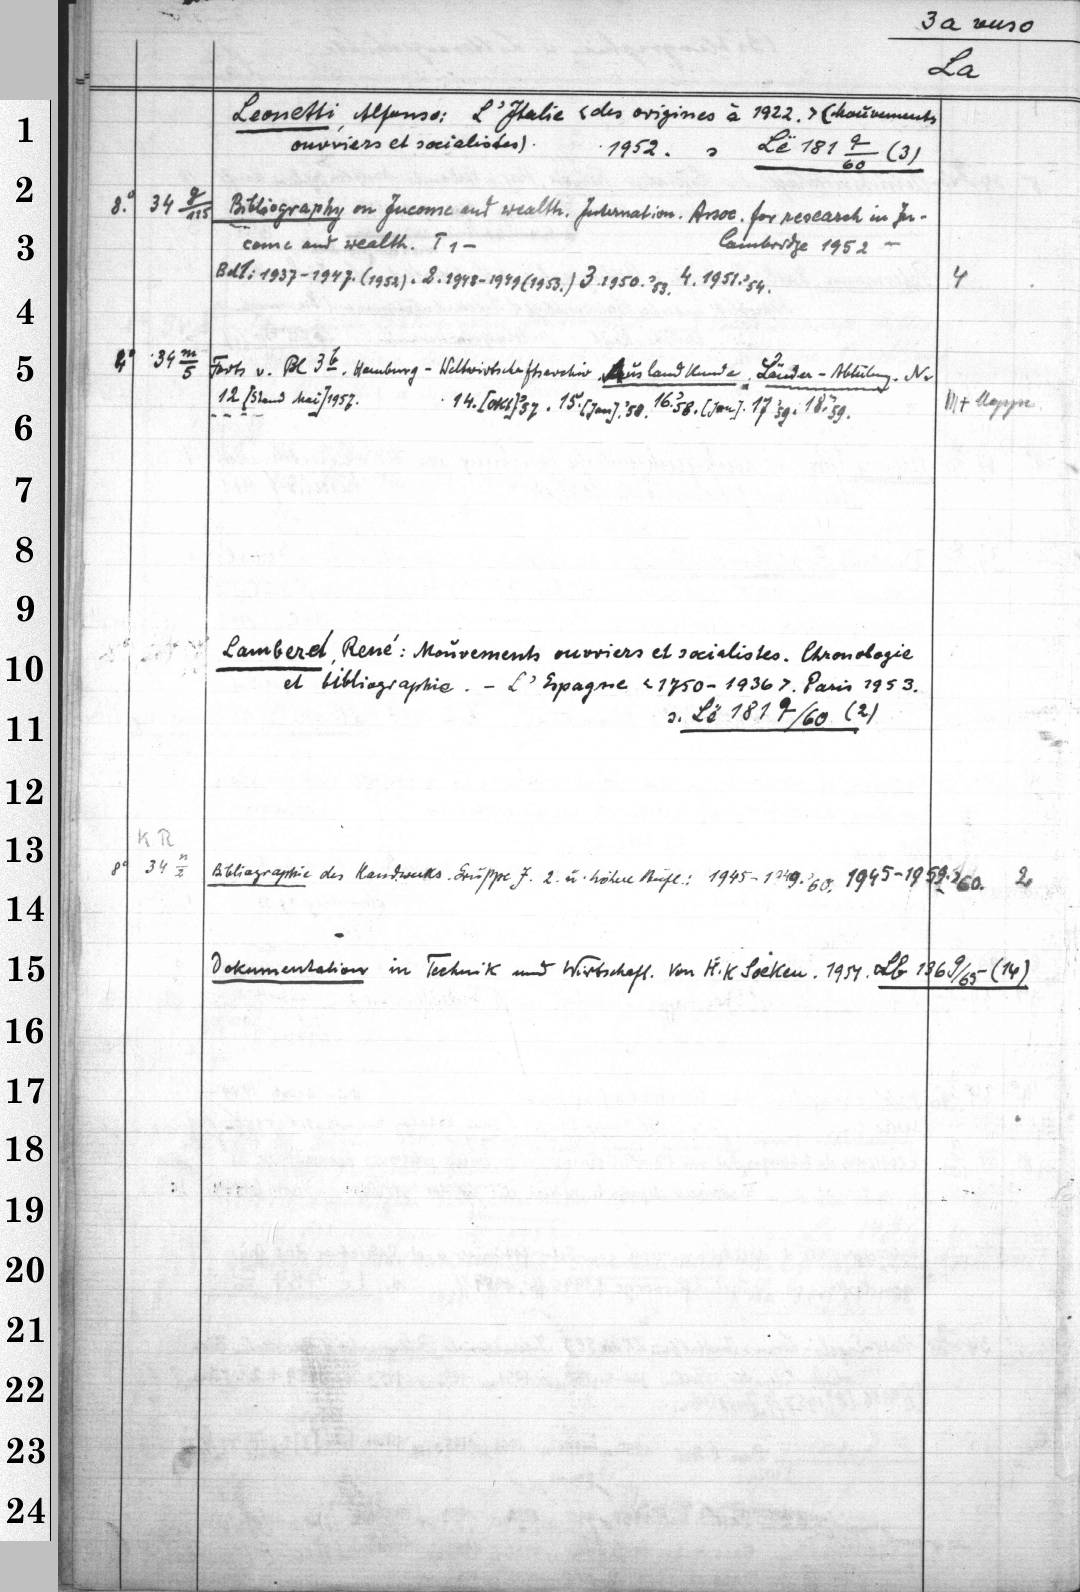 3a verso
La
1 Leonetti, Alfonso: L'Italie <des origines à 1922.> (Mouvements
ouvriers et socialistes). 1952. s Lë 181 q/60 (3)
2 8.° 34 q/115 Bibliography on Income and wealth. Internation. Assoc. for research in In-
3 come and wealth. T 1 - Cambridge 1952 -
Bd 1: 1937-1947. (1952). 2. 1948-1949 (1953.) 3. 1950. '53. 4. 1951. '54. 4
4
5 4° 34 m/5 Forts v. Bl 3 b. Hamburg - Weltwirtschaftsarchiv. Auslandkunde. Länder-Abteilung. Nr
12 [Stand Mai] 1957. 14. [Okt] '57. 15. [Jan]. '58. 16. '58. [Jan]. 17. '59. 18. '59. M + Mappe
6
7
8
9
10 Lamberet, René: Mouvements ouvriers et socialistes. Chronologie
et bibliographie. - L'Espagne <1750-1936>. Paris 1953.
11 s. Lë 181 q/60 (2)
12
13 K R
8° 34 n/2 Bibliographie des Handwerks. Gruppe J. 2. u. höhere Aufl.: 1945-1949. '60. 1945-1959. '60. 2
14
15 Dokumentation in Technik und Wirtschaft. Von H. K Soeken. 1951. Lb 136 q/65 (14)
16
17
18
19
20
21
22
23
24